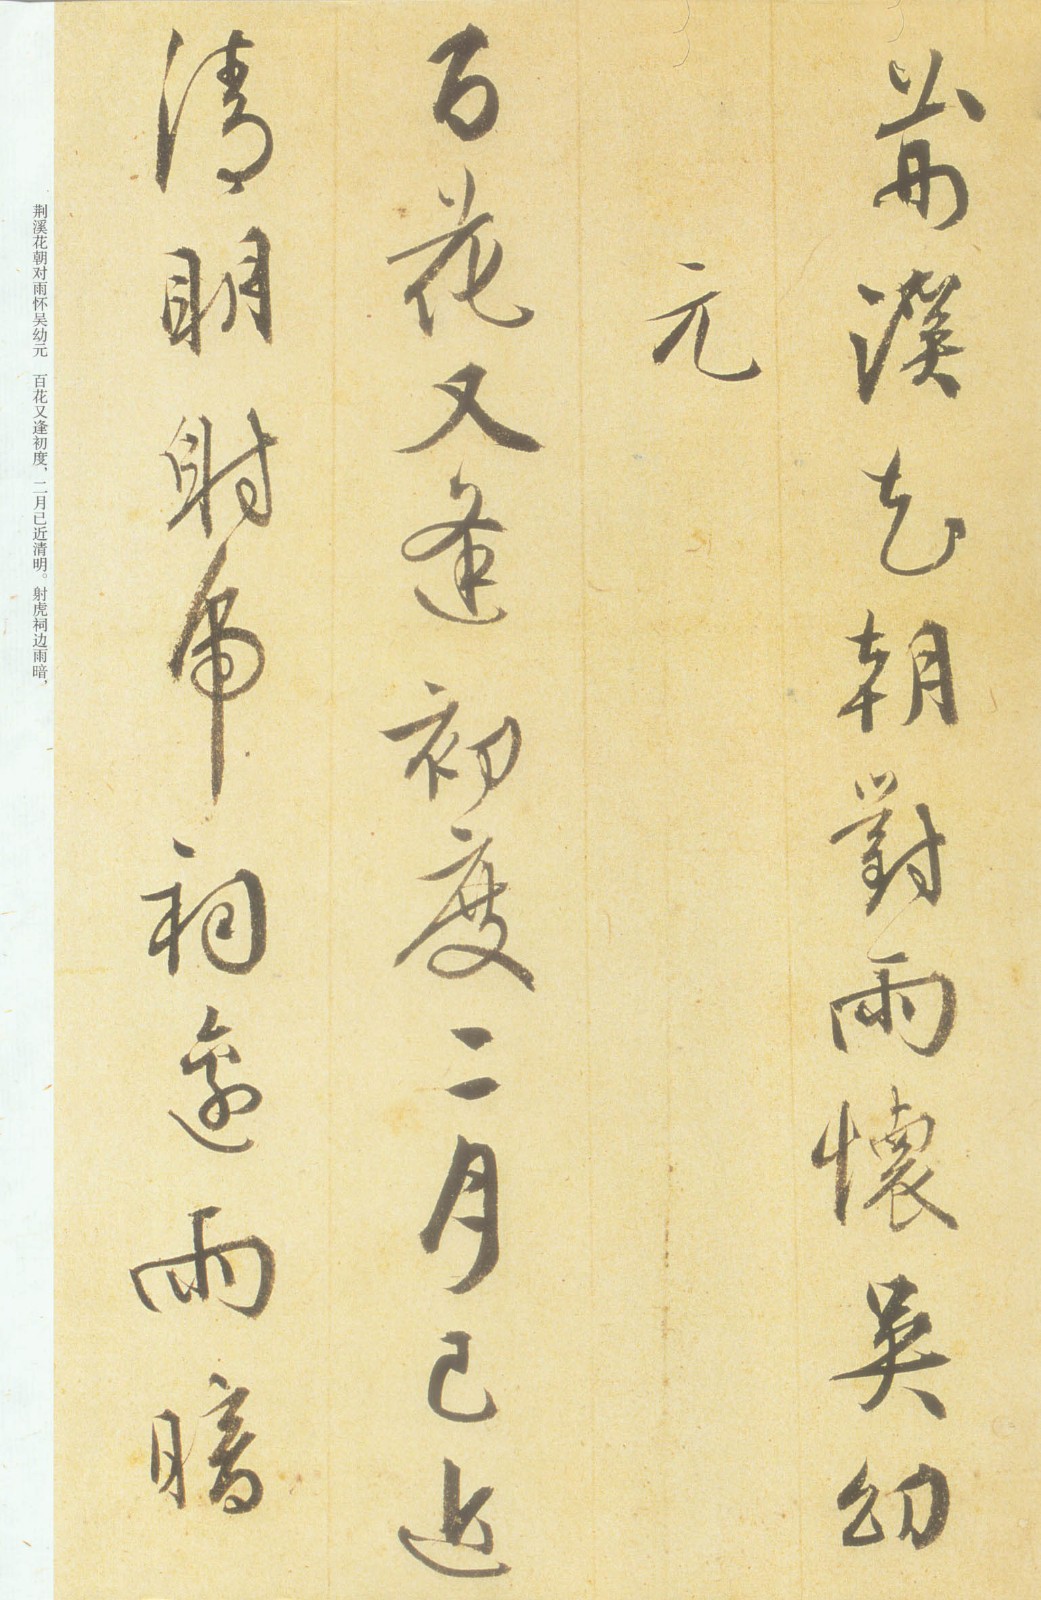 荆溪花朝對雨懷吴幼
元
百花又逢初度二月已近
清明射虎祠邊雨暗
荆溪花朝对雨怀吴幼元　百花又逢初度，二月已近清明。射虎祠边雨暗，